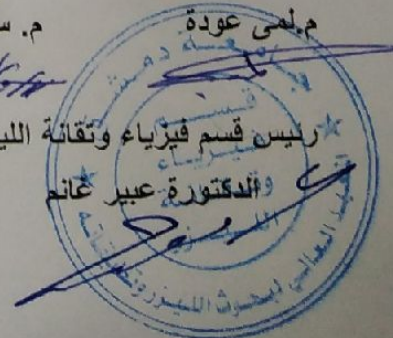 م.لمى عودة م. س
رئيس قسم فيزياء وتقانة اللي
الدكتورة عبير غانم
جامعة دمشق
قسم
فيزياء
وتقانة
الليزر
المعهد العالي لبحوث الليزر وتطبيقاته